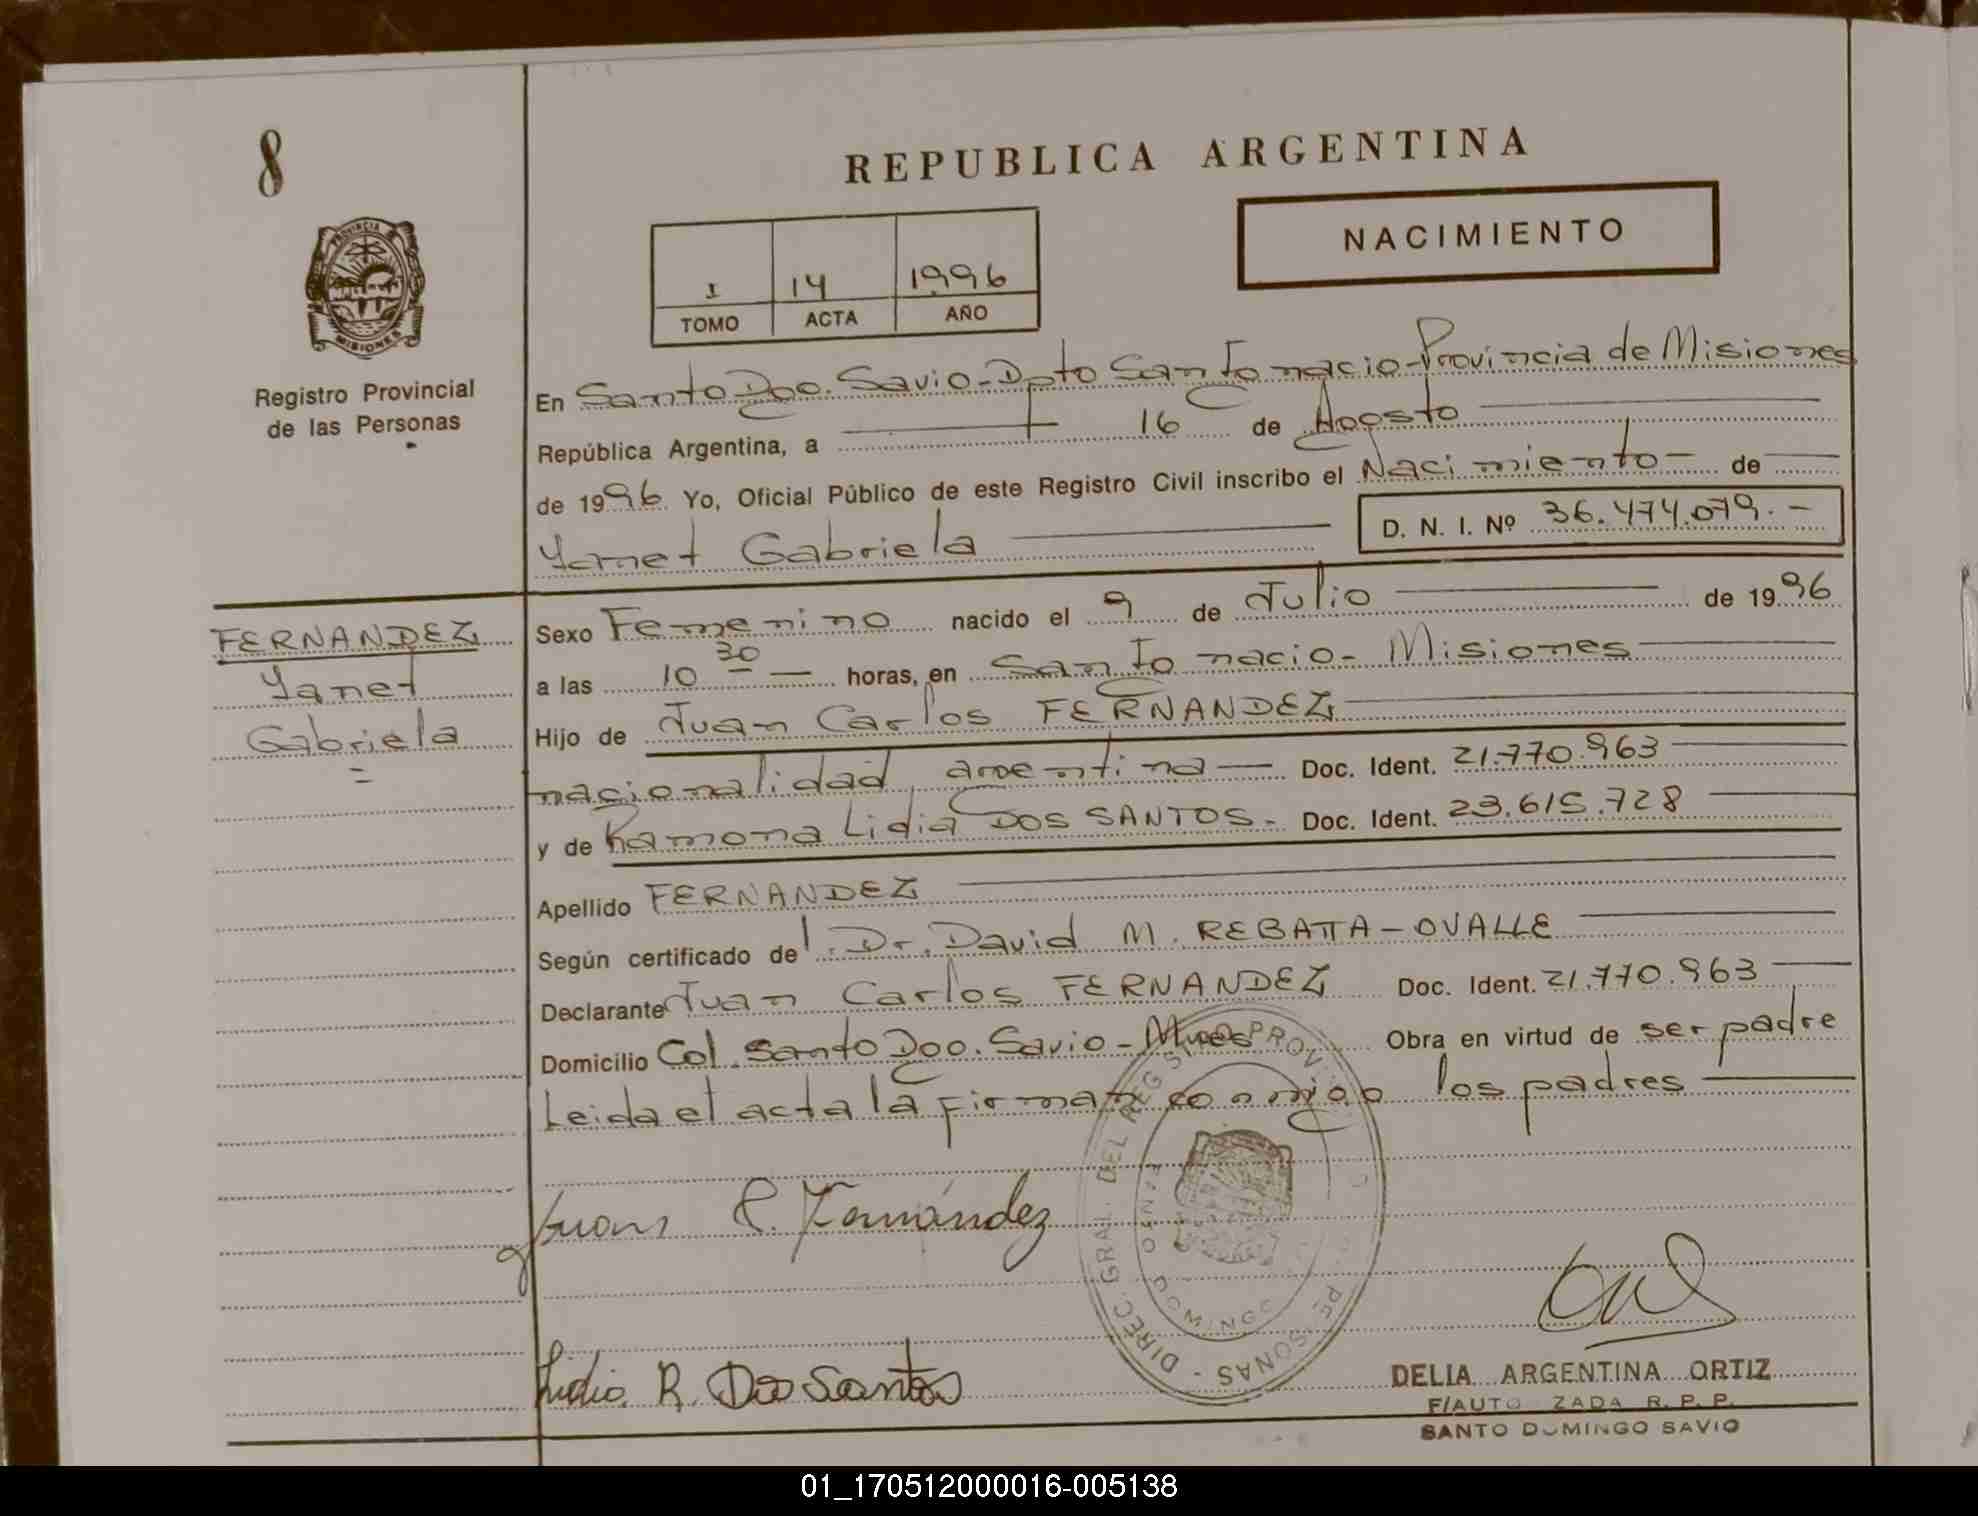 8
PROVINCIA DE
MISIONES
Registro Provincial
de las Personas
REPUBLICA ARGENTINA
NACIMIENTO
I 14 1996
TOMO ACTA AÑO
En Santo Dgo. Savio - Dpto San Ignacio - Provincia de Misiones
República Argentina, a 16 de Agosto
de 1996 Yo, Oficial Público de este Registro Civil inscribo el Nacimiento - de
Yanet Gabriela D. N. I. Nº 36.474.079.-
FERNANDEZ
Yanet
Gabriela
Sexo Femenino nacido el 9 de Julio de 1996
a las 10 30 horas, en San Ignacio - Misiones
Hijo de Juan Carlos FERNANDEZ
nacionalidad argentina Doc. Ident. 21.770.963
y de Ramona Lidia DOS SANTOS - Doc. Ident. 23.615.728
Apellido FERNANDEZ
Según certificado de l. Dr. David M. REBATTA - OVALLE
Declarante Juan Carlos FERNANDEZ Doc. Ident. 21.770.963
Domicilio Col. Santo Dgo. Savio - Mnes Obra en virtud de ser padre
Leida el acta la firman conmigo los padres
Juan C. Fernández
Lidia R. Dos Santos
DIREC. GRAL. DEL REGISTRO PROV. PERSONAS
DOMINGO
DELIA ARGENTINA ORTIZ
SANTO DOMINGO SAVIO
01_170512000016-005138